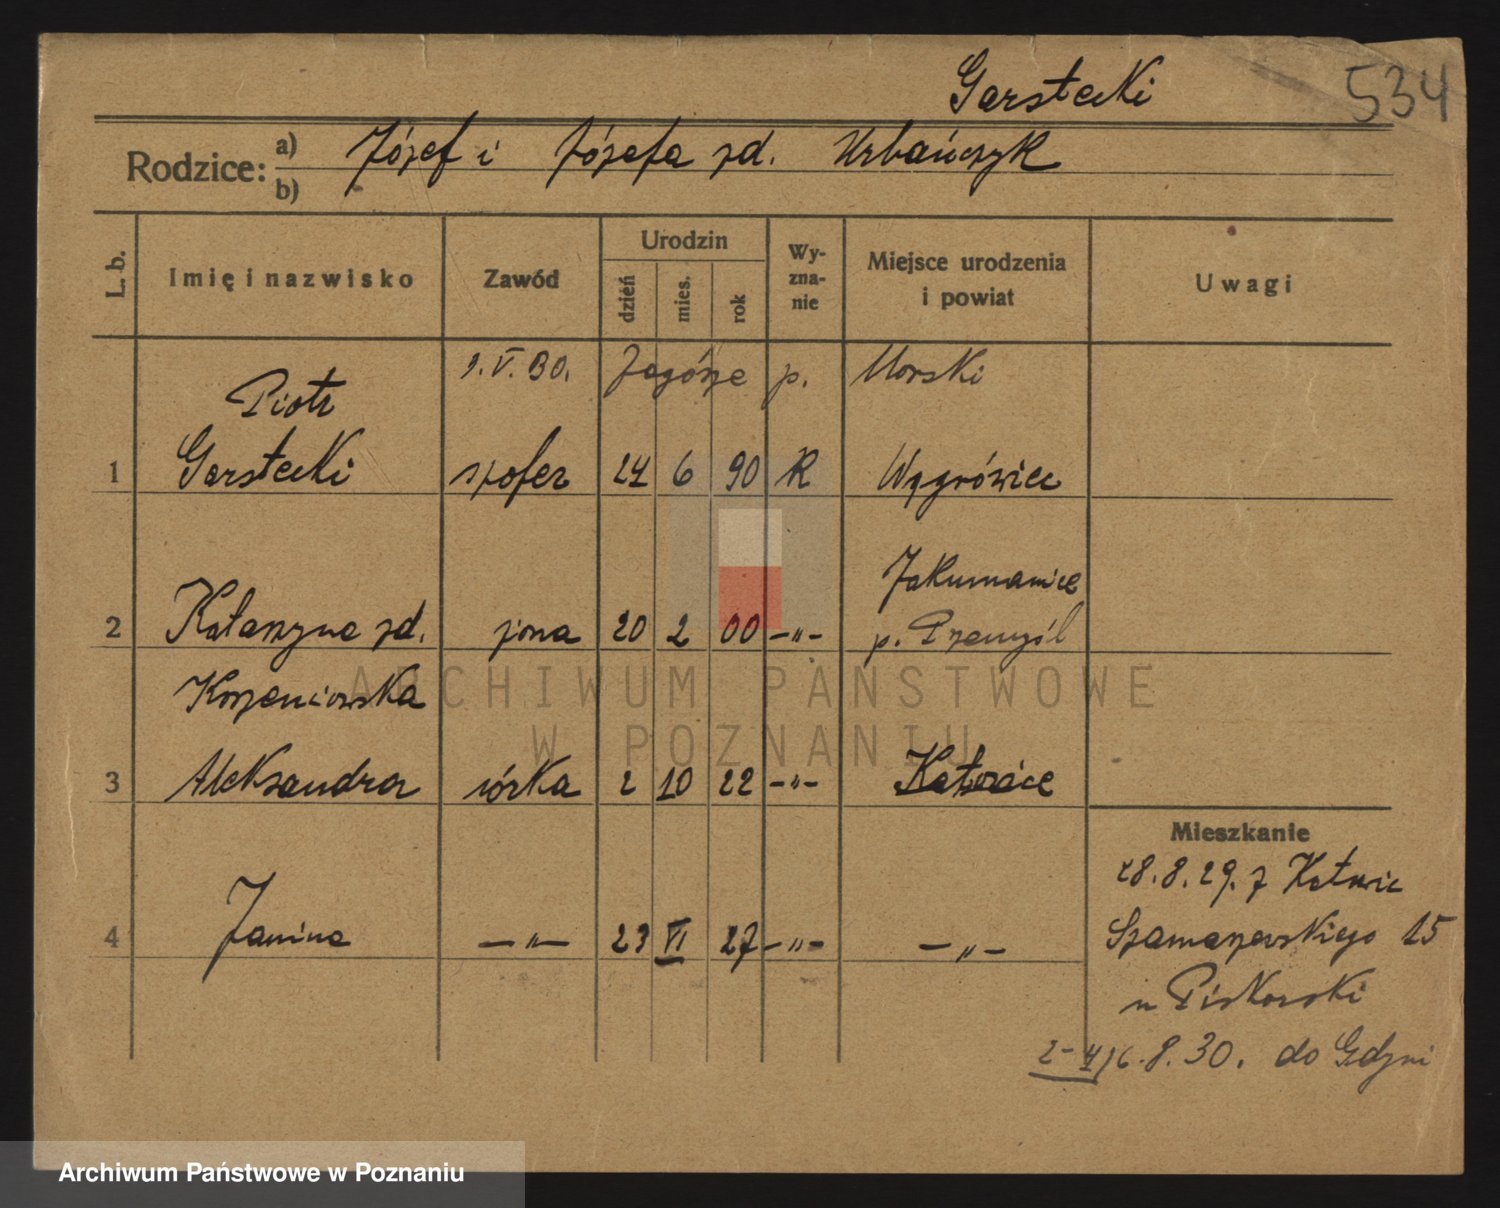 Garstecki 534
Rodzice: a) Józef i Józefa zd. Urbańczyk
b)
L. b. Imię i nazwisko Zawód Urodzin dzień mies. rok Wy-zna-nie Miejsce urodzenia i powiat Uwagi
9.V.30. Zagórze p. Morski
Piotr
1 Garstecki szofer 24 6 90 R Wągrówiec
Jaksmanice
2 Katarzyna zd. żona 20 2 00 -"- p. Przemyśl
Korzeniowska
3 Aleksandra córka 2 10 22 -"- Katowice
Mieszkanie
28.8.29. z Katowic
4 Janina -"- 23 VI 27 -"- -"- Szamarzewskiego 15
u Piskorski
2-4/6.8.30. do Gdyni
ARCHIWUM PAŃSTWOWE
W POZNANIU
Archiwum Państwowe w Poznaniu